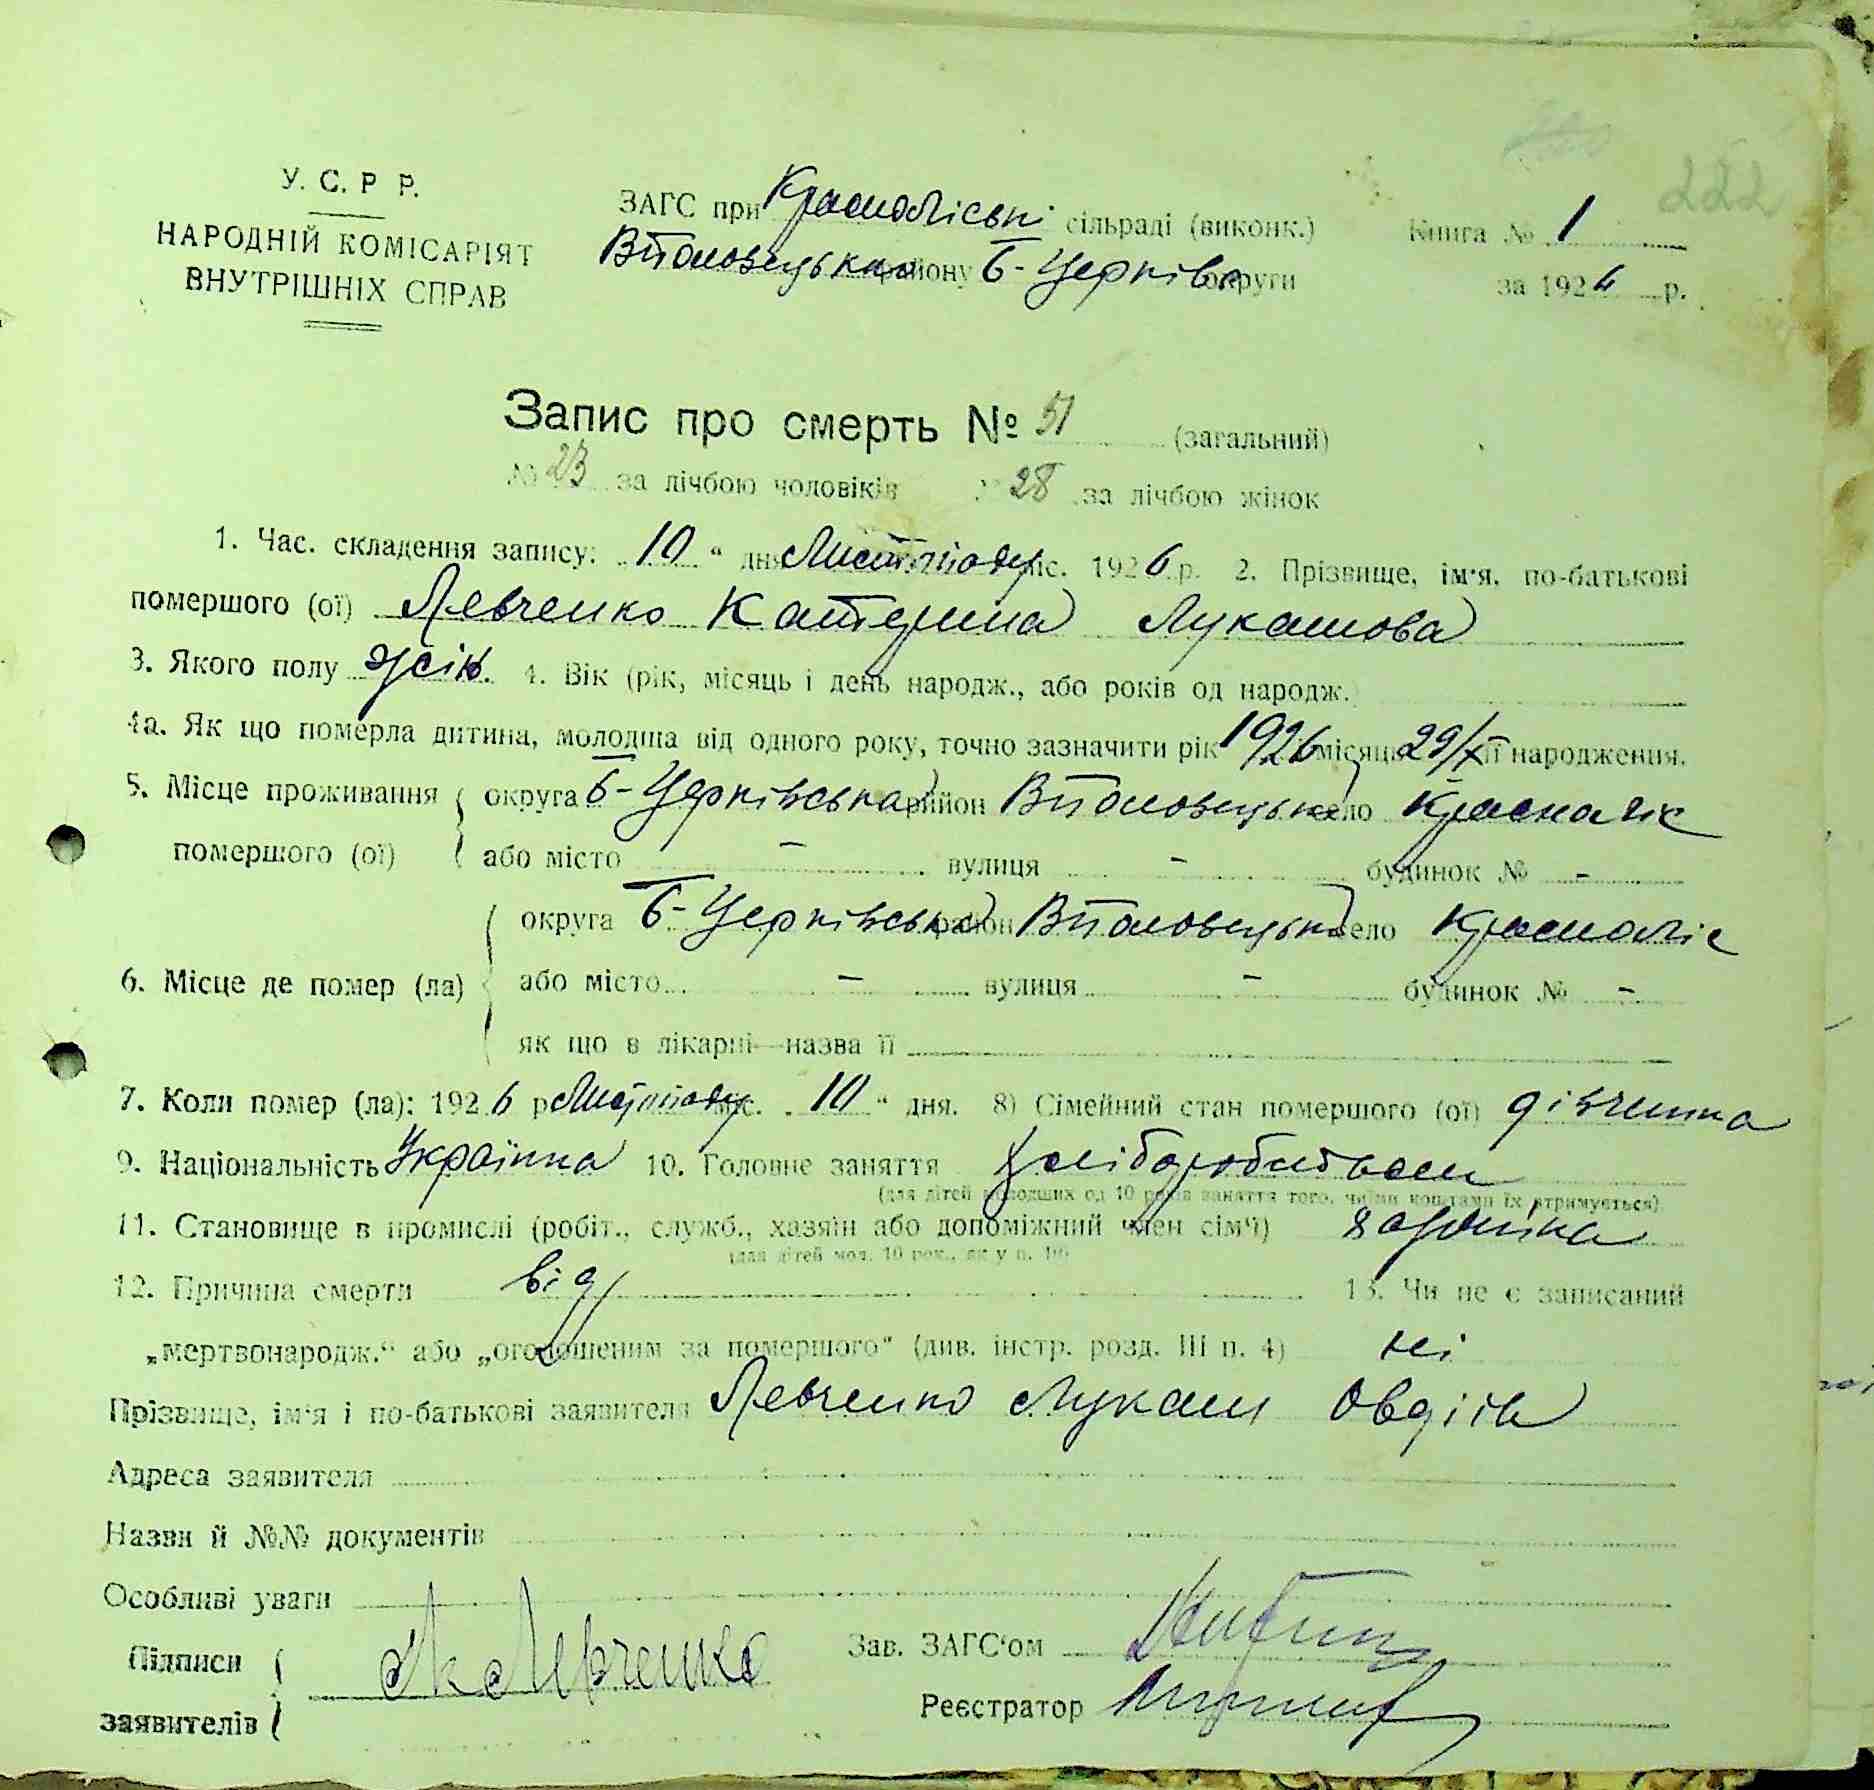 222
У. С. Р Р.
НАРОДНІЙ КОМІСАРІЯТ
ВНУТРІШНІХ СПРАВ
ЗАГС при Красноліські сільраді (виконк.) Книга № 1
району Б-Церків округи за 1926 р.
Запис про смерть № 51 (загальний)
№ 23 за лічбою чоловіків № 28 за лічбою жінок
1. Час. складення запису: „10“ дня Листопаду міс. 1926 р. 2. Прізвище, ім'я, по-батькові
помершого (ої) Левченко Катерина Лукашова
3. Якого полу жін. 4. Вік (рік, місяць і день народж., або років од народж.)
4а. Як що померла дитина, молодша від одного року, точно зазначити рік 1926 місяць 29/X її народження.
5. Місце проживання помершого (ої) округа Б-Церківська район село Красналіс
або місто - вулиця - будинок № -
6. Місце де помер (ла) округа Б-Церківська район село Красноліс
або місто - вулиця - будинок № -
як що в лікарні—назва її
7. Коли помер (ла): 1926 р. Листопаду міс. „10“ дня. 8) Сімейний стан помершого (ої) дівчинка
9. Національність Українка 10. Головне заняття
(для дітей молодших од 10 років заняття того, чиїми коштами їх утримується)
11. Становище в промислі (робіт., служб., хазяїн або допоміжний член сім'ї)
(для дітей мол. 10 рок., як у п. 10)
12. Причина смерти від 13. Чи не є записаний
„мертвонародж.“ або „оголошеним за помершого“ (див. інстр. розд. III п. 4) ні
Прізвище, ім'я і по-батькові заявителя Левченко Лукаш Овдіїв
Адреса заявителя
Назви й №№ документів
Особливі уваги
Підписи заявителів Левченко Зав. ЗАГС'ом
Реєстратор